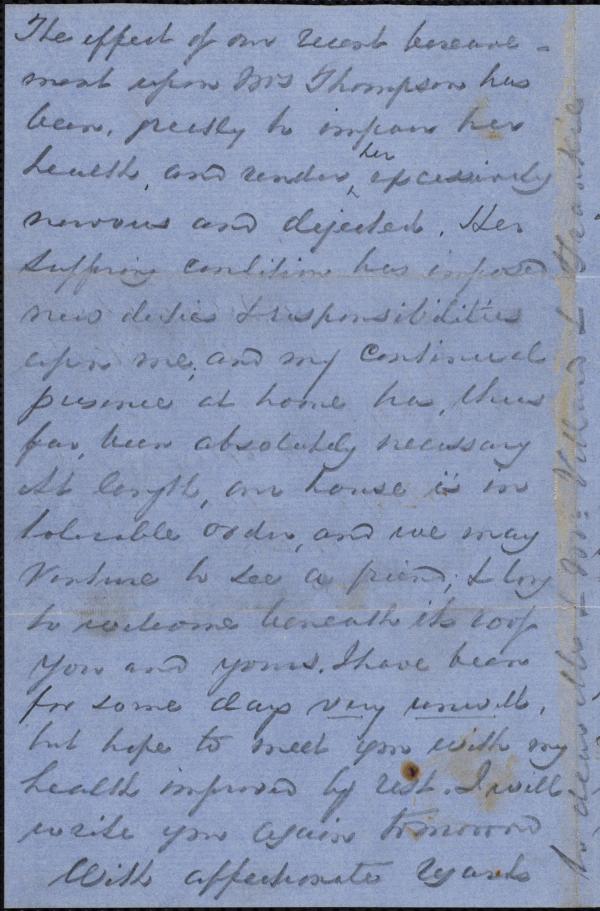 The effect of our recent bereave-
ment upon Mrs Thompson has
been, greatly to impair her
health, and render her excessively
nervous and dejected. Her
suffering condition has imposed
new duties & responsibilities
upon me; and my continued
presence at home has, thus
far, been absolutely necessary
At length, our house is in
tolerable order, and we may
venture to see a friend; & long
to welcome beneath its roof
you and yours. I have been
for some days very unwell,
but hope to meet you with my
health improved by rest. I will
write you again tomorrow
With affectionate regards
to dear Mrs & Mr. Villard & Frankie